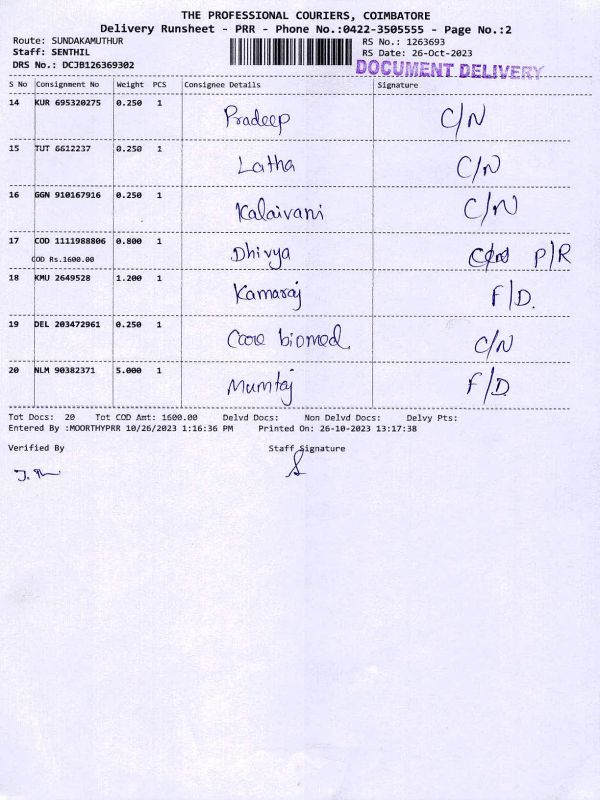 THE PROFESSIONAL COURIERS, COIMBATORE
Delivery Runsheet - PRR - Phone No.:0422-3505555 - Page No.:2
Route: SUNDAKAMUTHUR RS No.: 1263693
Staff: SENTHIL RS Date: 26-Oct-2023
DRS No.: DCJB126369302 DOCUMENT DELIVERY
S No Consignment No Weight PCS Consignee Details Signature
14 KUR 695320275 0.250 1 Pradeep C/N
15 TUT 6612237 0.250 1 Latha C/N
16 GGN 910167916 0.250 1 Kalaivani C/N
17 COD 1111988806 0.800 1 Dhivya P/R
COD Rs.1600.00
18 KMU 2649528 1.200 1 Kamaraj F/D.
19 DEL 203472961 0.250 1 Care biomed C/N
20 NLM 90382371 5.000 1 Mumtaj F/D.
Tot Docs: 20 Tot COD Amt: 1600.00 Delvd Docs: Non Delvd Docs: Delvy Pts:
Entered By :MOORTHYPRR 10/26/2023 1:16:36 PM Printed On: 26-10-2023 13:17:38
Verified By Staff Signature